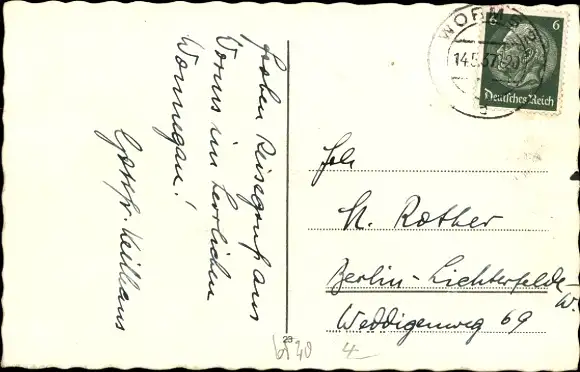 frohen Reisegruß aus
Worms im herrlichen
Wonnegau!
WORMS
14.5.37
6
6
Deutsches Reich
Frl.
M. Rother
Berlin-Lichterfelde-
W.
Weddigenweg 69
29